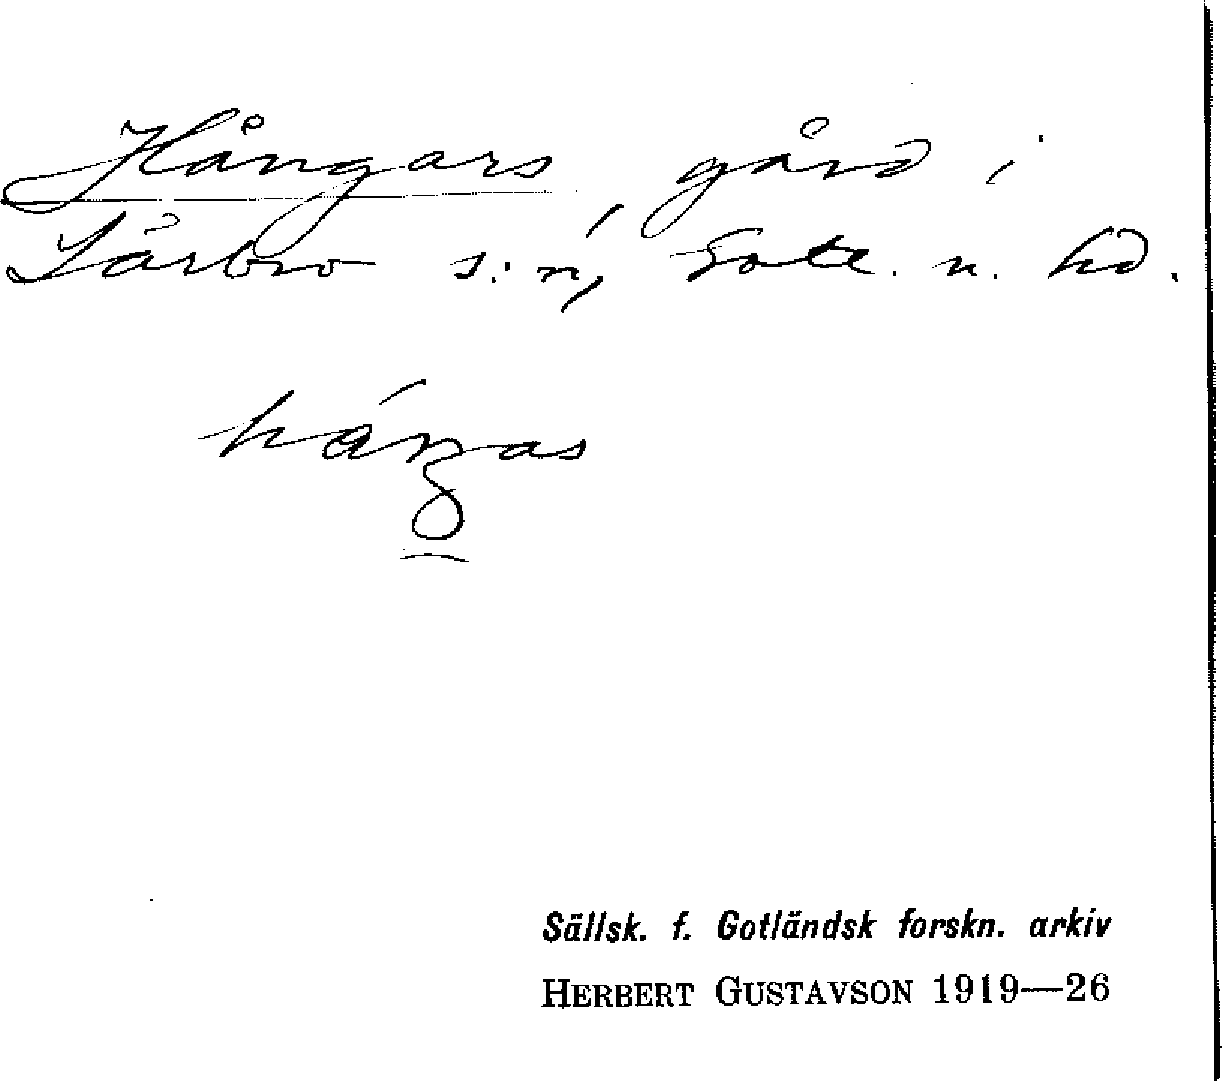 Hångars gård i
Lärbro s:n, Gotl. n. hd.
háŋas
Sällsk. f. Gotländsk forskn. arkiv
HERBERT GUSTAVSON 1919—26